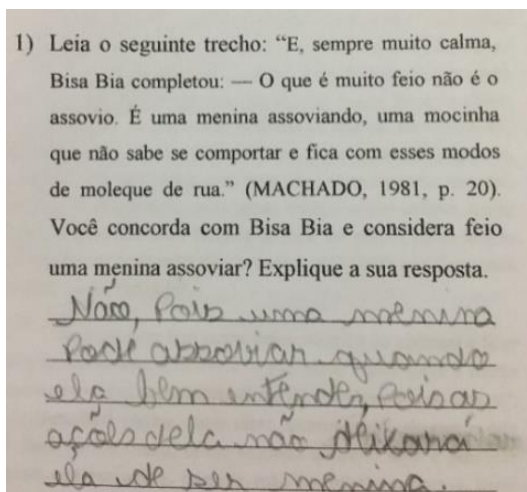 1) Leia o seguinte trecho: “E, sempre muito calma,
Bisa Bia completou: — O que é muito feio não é o
assovio. É uma menina assoviando, uma mocinha
que não sabe se comportar e fica com esses modos
de moleque de rua.” (MACHADO, 1981, p. 20).
Você concorda com Bisa Bia e considera feio
uma menina assoviar? Explique a sua resposta.
Não, Pois uma menina
Pode assoviar quando
ela bem entender, pois as
ações dela não deixará
ela de ser menina.